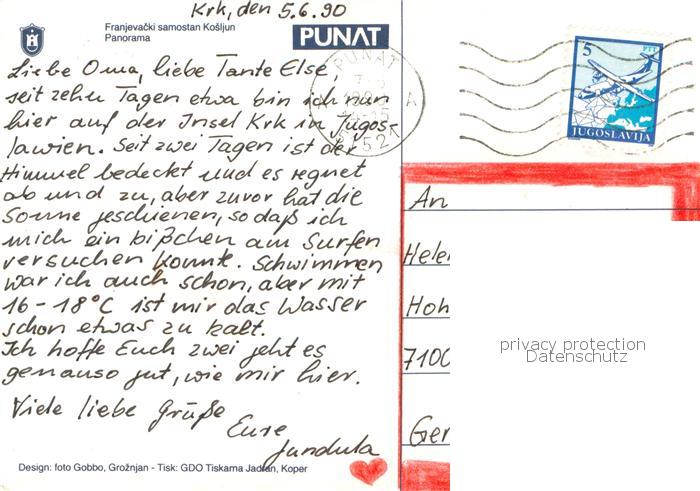 Krk, den 5.6.90
Franjevački samostan Košljun
Panorama
PUNAT
Liebe Oma, liebe Tante Else,
seit zehn Tagen etwa bin ich nun
hier auf der Insel Krk in Jugos-
lawien. Seit zwei Tagen ist der
Himmel bedeckt und es regnet
ab und zu, aber zuvor hat die
Sonne geschienen, so daß ich
mich ein bißchen am Surfen
versuchen konnte. Schwimmen
war ich auch schon, aber mit
16-18°C ist mir das Wasser
schon etwas zu kalt.
Ich hoffe Euch zwei geht es
genauso gut, wie mir hier.
Viele liebe Grüße
Eure
Jundula
Design: foto Gobbo, Grožnjan - Tisk: GDO Tiskarna Jadran, Koper
PUNAT
5
PTT
JUGOSLAVIJA
An
Hele
Hoh
7100
Ger
privacy protection
Datenschutz